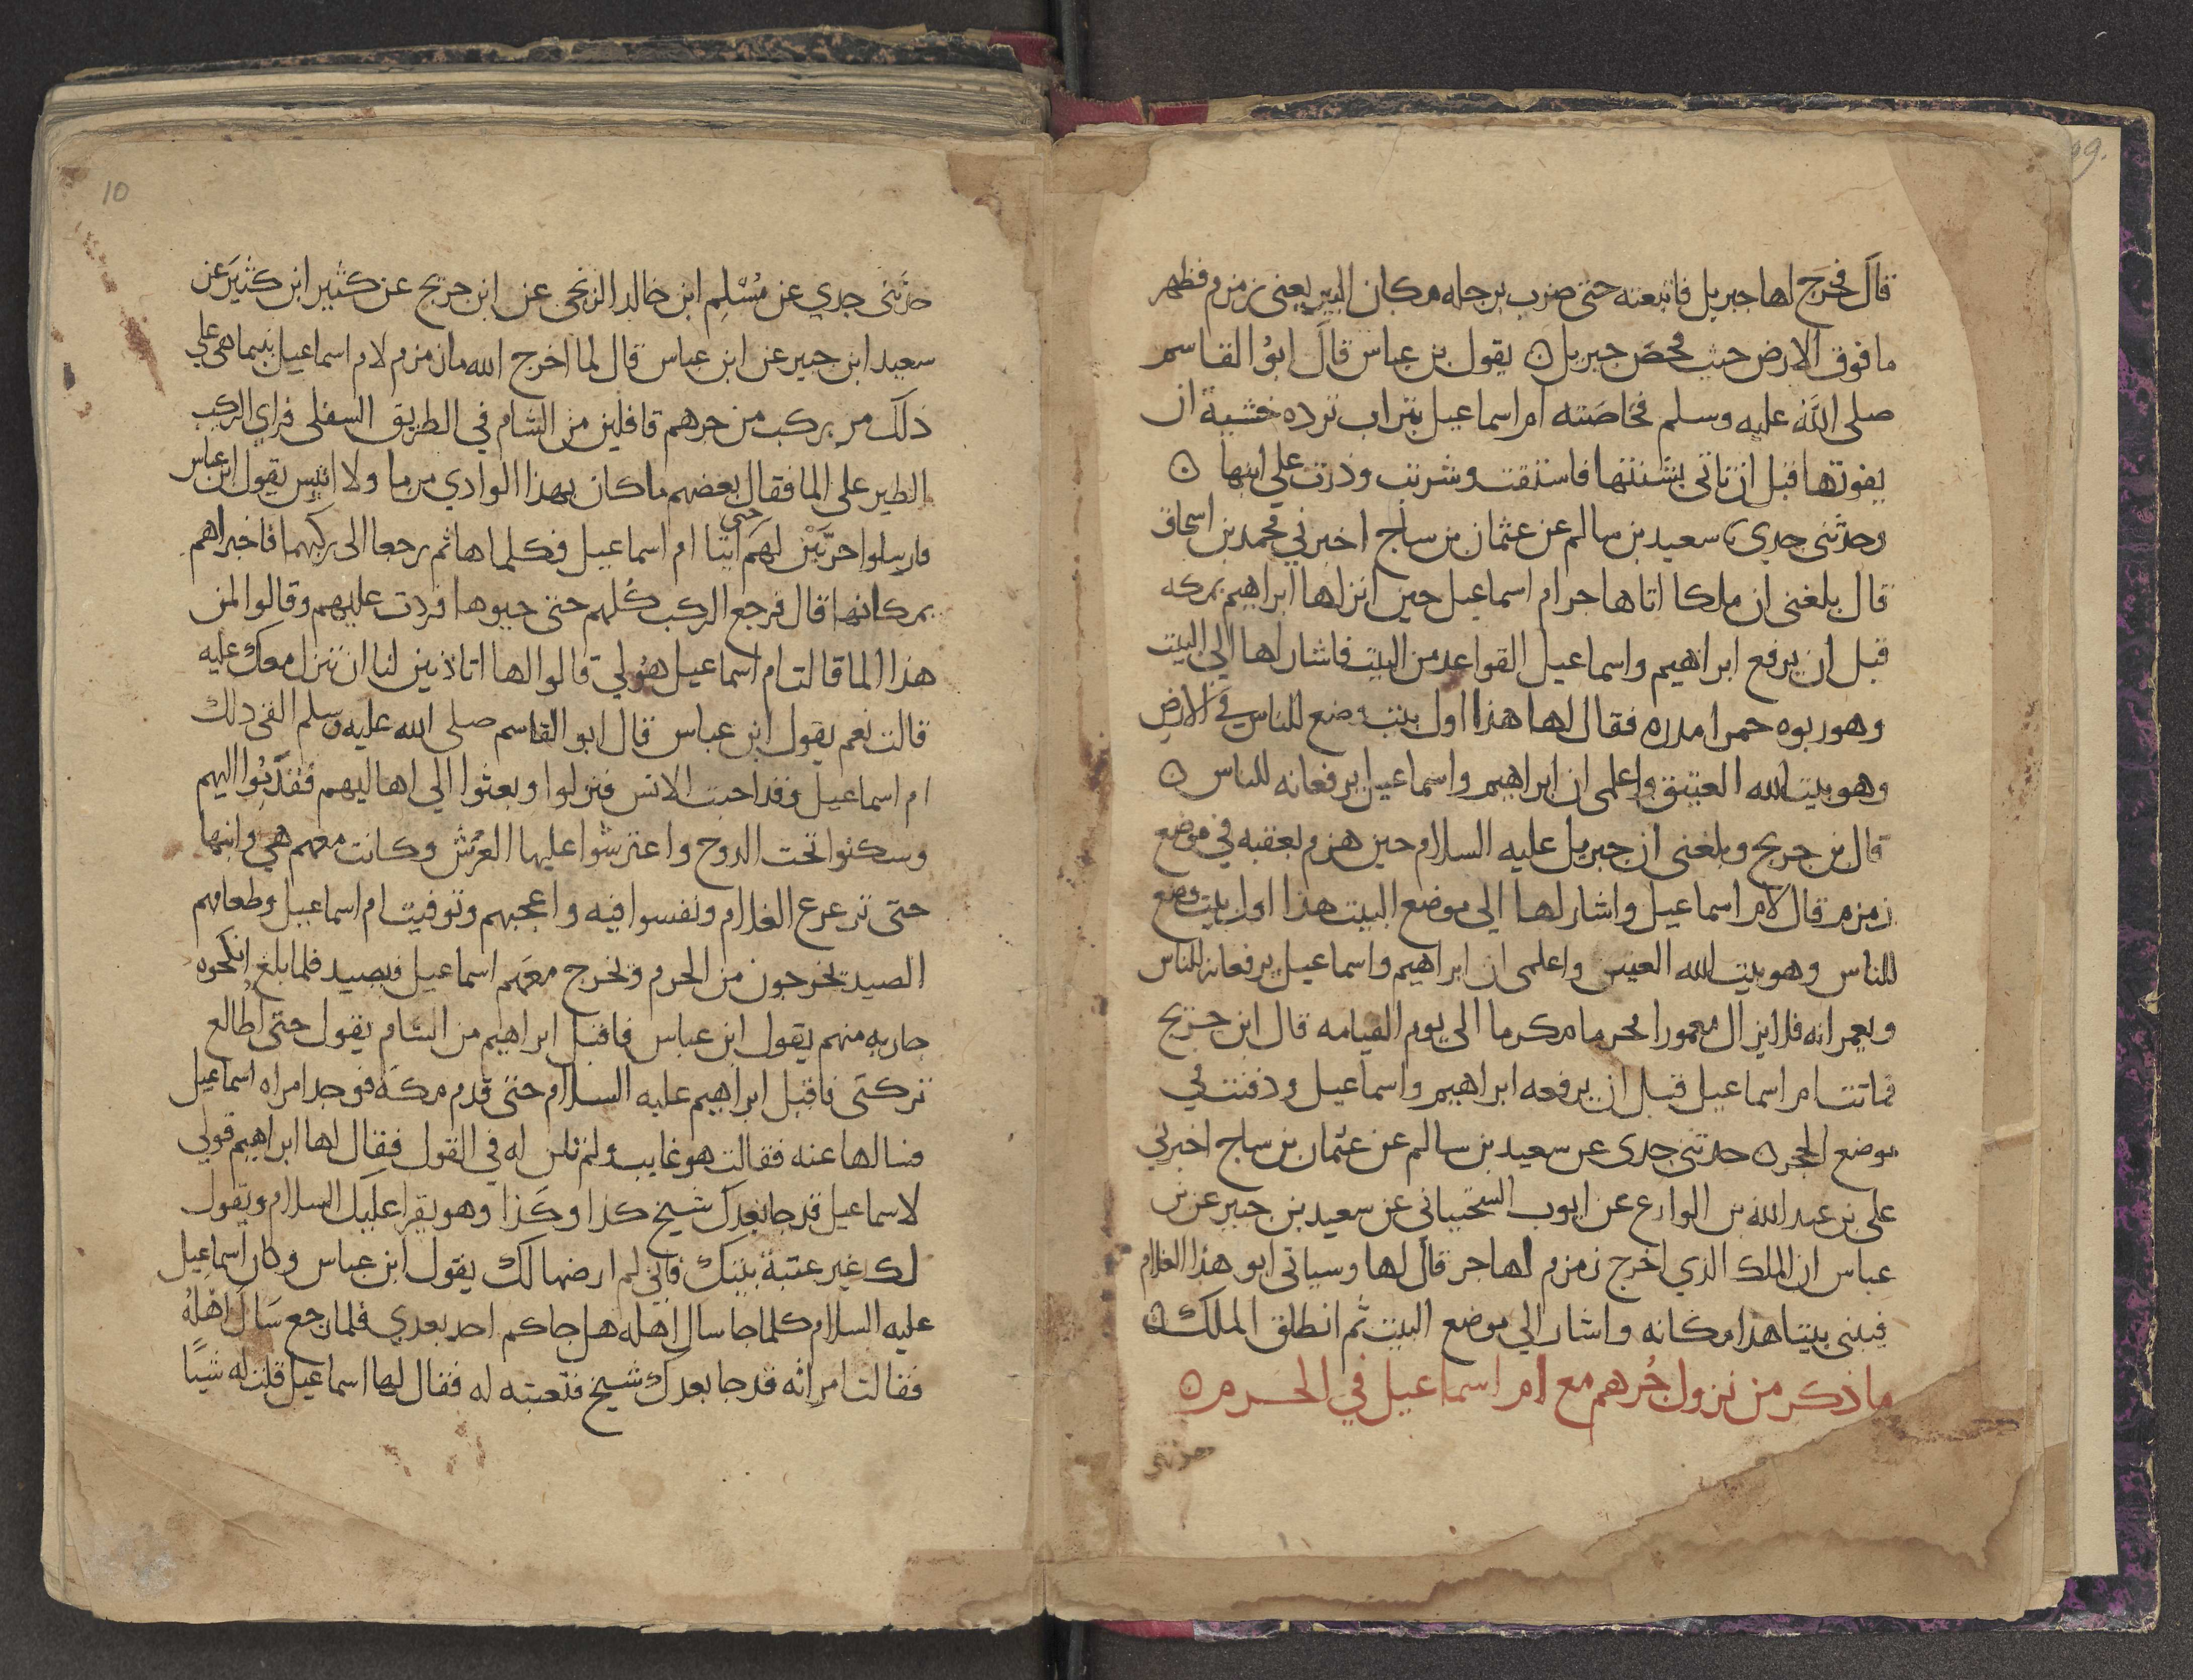 قال فخرج لها جبريل فاتبعته حتى ضرب برجله مكان البير يعني زمزم فظهر
ما فوق الارض حيث فحص جبريل ن يقول بن عباس قال ابو القاسم
صلى الله عليه وسلم فحاضته ام اسماعيل بتراب ترده خشية ان
يفوتها قبل ان تاتي بشنتها فاستقت وشربت ودرت علي ابنها ن
وحدثني جدي سعيد بن سالم عن عثمان بن ساج اخبرني محمد بن اسحاق
قال بلغني ان ملكا اتا هاجر ام اسماعيل حين انزلها ابراهيم بمكه
قبل ان يرفع ابراهيم واسماعيل القواعد من البيت فاشار لها الي البيت
وهو ربوه حمرا مدره فقال لها هذا اول بيت وضع للناس في الارض
وهو بيت الله العتيق واعلمي ان ابراهيم واسماعيل يرفعانه للناس ن
قال بن جريج وبلغني ان جبريل عليه السلام حين هزم بعقبه في موضع
زمزم قال لام اسماعيل واشار لها الي موضع البيت هذا اول بيت وضع
للناس وهو بيت الله العتيق واعلمي ان ابراهيم واسماعيل يرفعانه للناس
ويعمرانه فلا يزال معمورا محرما مكرما الى يوم القيامه قال ابن جريج
فماتت ام اسماعيل قبل ان يرفعه ابراهيم واسماعيل ودفنت في
موضع الحجر ن حدثني جدي عن سعيد بن سالم عن عثمان بن ساج اخبرني
علي بن عبد الله بن الوازع عن ايوب السختياني عن سعيد بن جبير عن بن
عباس ان الملك الذي اخرج زمزم لهاجر قال لها وسياتي ابو هذا الغلام
فيبني بيتا هذا مكانه واشار الي موضع البيت ثم انطلق الملك ن
ما ذكر من نزول جُرهم مع ام اسماعيل في الحرم ن
حدثني
10
حدثني جدي عن مُسْلِم ابن خالد الزنجي عن ابن جريج عن كثير ابن كثير عن
سعيد ابن جبير عن ابن عباس قال لما اخرج الله ما زمزم لام اسماعيل بينما هي علي
ذلك مر ركب من جرهم قافلين من الشام في الطريق السفلى فراي الركب
الطير على الما فقال بعضهم ما كان بهذا الوادي من ما ولا انيس يقول ابن عباس
فارسلوا جريّين لهم حتى اتيا ام اسماعيل فكلماها ثم رجعا الى ركبهما فاخبراهم
بمكانها قال فرجع الركب كُلهم حتى حيوها فردت عليهم وقالوا لمن
هذا الما قالت ام اسماعيل هُو لي قالوا لها اتاذنين لنا ان ننزل معك عليه
قالت نعم يقول ابن عباس قال ابو القاسم صلى الله عليه وسلم الفى ذلك
ام اسماعيل وقد احبت الانس فنزلوا وبعثوا الي اهاليهم فقدمُوا اليهم
وسكنوا تحت الدوح واعترشوا عليها العُرُش وكانت معهم هي وابنها
حتى ترعرع الغلام ونفسوا فيه واعجبهم وتوفيت ام اسماعيل وطعامهم
الصيد يخرجون من الحرم ويخرج معهم اسماعيل فيصيد فلما بلغ انكحوه
جاريه منهم يقول ابن عباس فاقبل ابراهيم من الشام يقول حتى اطالع
تركتي فاقبل ابراهيم عليه السلام حتى قدم مكة فوجد امراه اسماعيل
فسالها عنه فقالت هو غايب ولم تلن له في القول فقال لها ابراهيم قولي
لاسماعيل قد جا بعدك شيخ كذا وكذا وهو يقرا عليك السلام ويقول
لك غير عتبة بيتك فاني لم ارضها لك يقول ابن عباس وكان اسماعيل
عليه السلام كلما جا سال اهله هل جاكم احد بعدي فلما رجع سَال اهْلهُ
فقالت امراته قد جا بعدك شيخ فنعتته له فقال لها اسماعيل قلت له شيًا